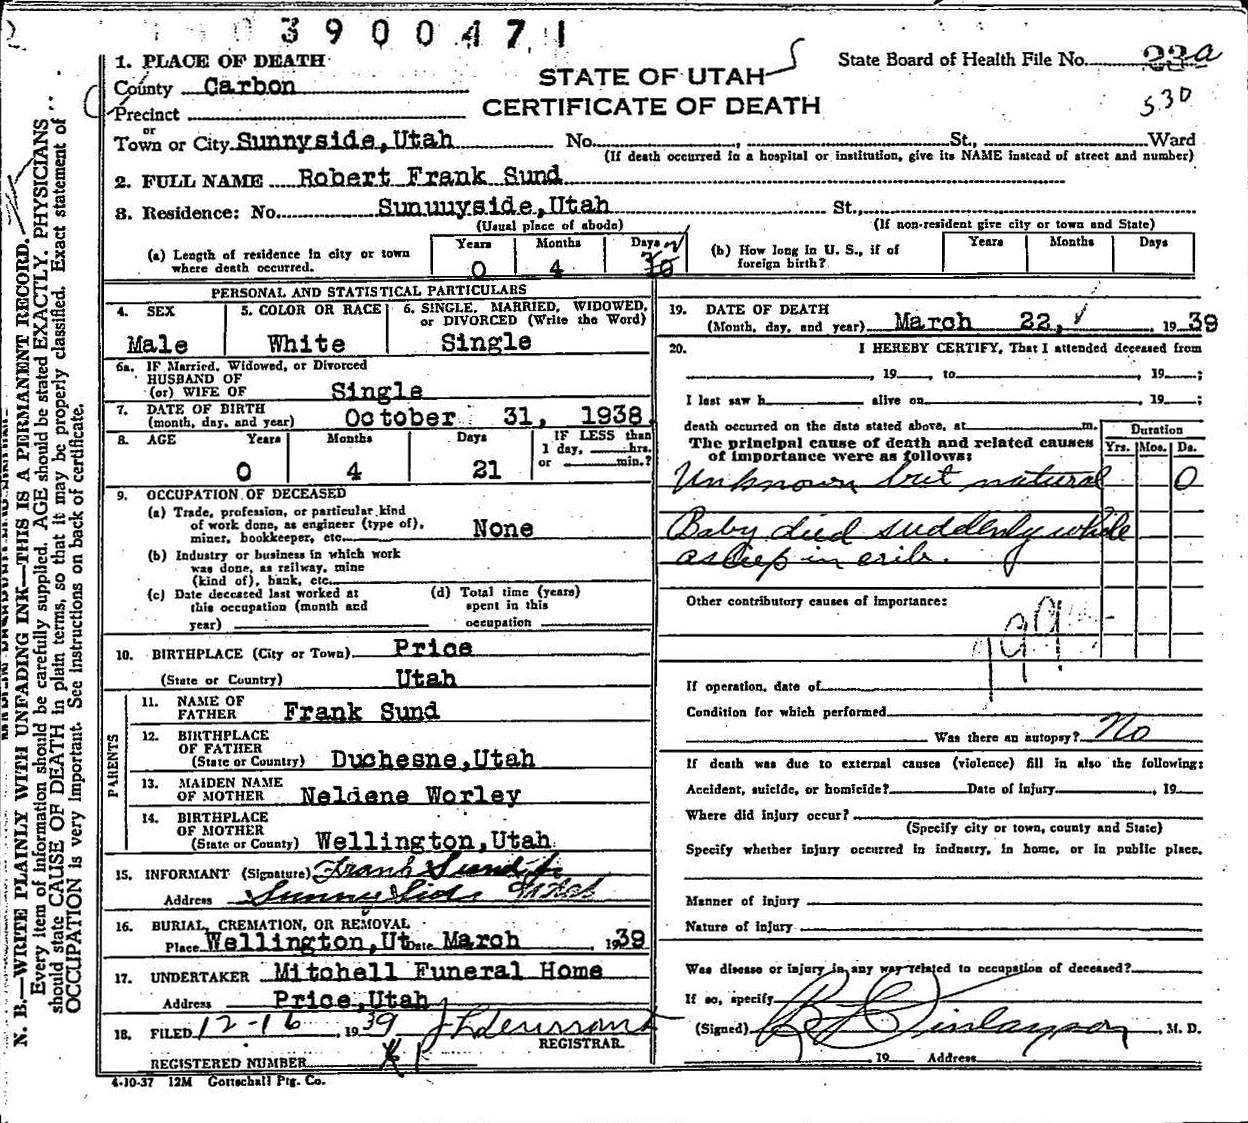 3900471
1. PLACE OF DEATH
County Carbon
Precinct
or
Town or City Sunnyside, Utah No. St., Ward
(If death occurred in a hospital or institution, give its NAME instead of street and number)
STATE OF UTAH
CERTIFICATE OF DEATH
State Board of Health File No. 23a
530
2. FULL NAME Robert Frank Sund
3. Residence: No. Sunuuyside, Utah St.,
(Usual place of abode) (If non-resident give city or town and State)
(a) Length of residence in city or town where death occurred. Years 0 Months 4 Days
(b) How long in U. S., if of foreign birth? Years Months Days
PERSONAL AND STATISTICAL PARTICULARS
4. SEX Male
5. COLOR OR RACE White
6. SINGLE, MARRIED, WIDOWED, or DIVORCED (Write the Word) Single
6a. IF Married, Widowed, or Divorced
HUSBAND OF
(or) WIFE OF Single
7. DATE OF BIRTH
(month, day, and year) October 31, 1938
8. AGE Years 0 Months 4 Days 21
IF LESS than 1 day, hrs. or min.?
9. OCCUPATION OF DECEASED
(a) Trade, profession, or particular kind
of work done, as engineer (type of),
miner, bookkeeper, etc. None
(b) Industry or business in which work
was done, as railway, mine
(kind of), bank, etc.
(c) Date deceased last worked at
this occupation (month and
year)
(d) Total time (years)
spent in this
occupation
10. BIRTHPLACE (City or Town) Price
(State or Country) Utah
PARENTS
11. NAME OF FATHER Frank Sund
12. BIRTHPLACE OF FATHER
(State or Country) Duchesne, Utah
13. MAIDEN NAME OF MOTHER Neldene Worley
14. BIRTHPLACE OF MOTHER
(State or Country) Wellington, Utah
15. INFORMANT (Signature) Frank Sund Jr
Address Sunny Side Utah
16. BURIAL, CREMATION, OR REMOVAL
Place Wellington, Ut Date March 1939
17. UNDERTAKER Mitchell Funeral Home
Address Price, Utah
18. FILED 12-16, 1939
REGISTRAR.
REGISTERED NUMBER 1
4-10-37 12M Gottschall Ptg. Co.
19. DATE OF DEATH
(Month, day, and year) March 22, 1939
20. I HEREBY CERTIFY, That I attended deceased from
, 19 , to , 19 ;
I last saw h alive on , 19 ;
death occurred on the date stated above, at m.
The principal cause of death and related causes
of importance were as follows:
Duration
Yrs. Mos. Ds.
Unknown but natural 0
Baby died suddenly while
asleep in crib.
Other contributory causes of importance:
If operation, date of
Condition for which performed
Was there an autopsy? No
If death was due to external causes (violence) fill in also the following:
Accident, suicide, or homicide? Date of injury , 19
Where did injury occur?
(Specify city or town, county and State)
Specify whether injury occurred in industry, in home, or in public place.
Manner of injury
Nature of injury
Was disease or injury in any way related to occupation of deceased?
If so, specify
(Signed) Finlayson, M. D.
, 19 Address
N. B.—WRITE PLAINLY WITH UNFADING INK—THIS IS A PERMANENT RECORD.
Every item of information should be carefully supplied. AGE should be stated EXACTLY. PHYSICIANS
should state CAUSE OF DEATH in plain terms, so that it may be properly classified. Exact statement of
OCCUPATION is very important. See instructions on back of certificate.